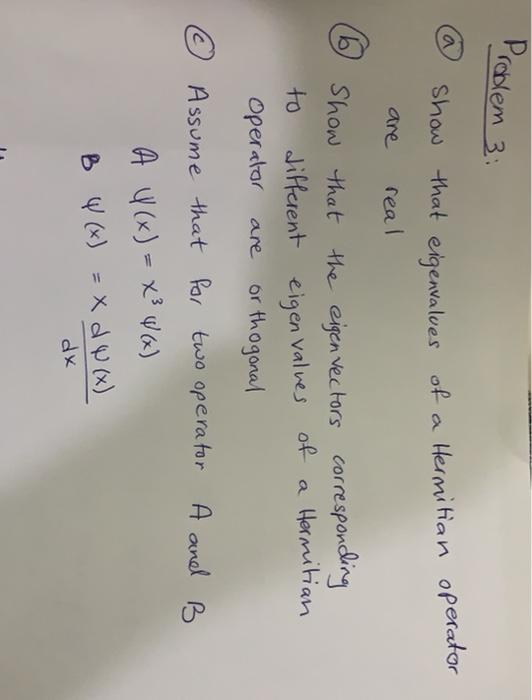 Problem 3:
(a) Show that eigenvalues of a Hermitian operator
are real
(b) Show that the eigenvectors corresponding
to different eigenvalues of a Hermitian
operator are orthogonal
(c) Assume that for two operator A and B
A ψ(x) = x³ ψ(x)
B ψ(x) = x dψ(x)/dx